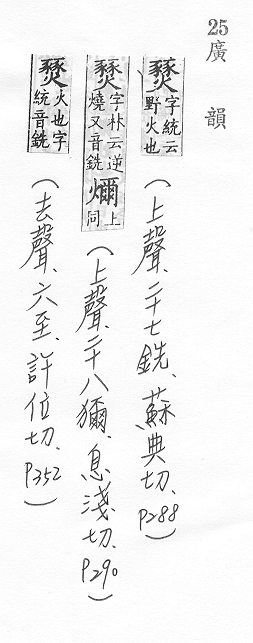 25
廣韻
燹字統云野火也(上聲、二十七銑、蘇典切、P288)
燹字林云逆燒又音銑𤐫上同(上聲、二十八獮、息淺切、P290)
燹火也字統音銑(去聲、六至、許位切、P352)